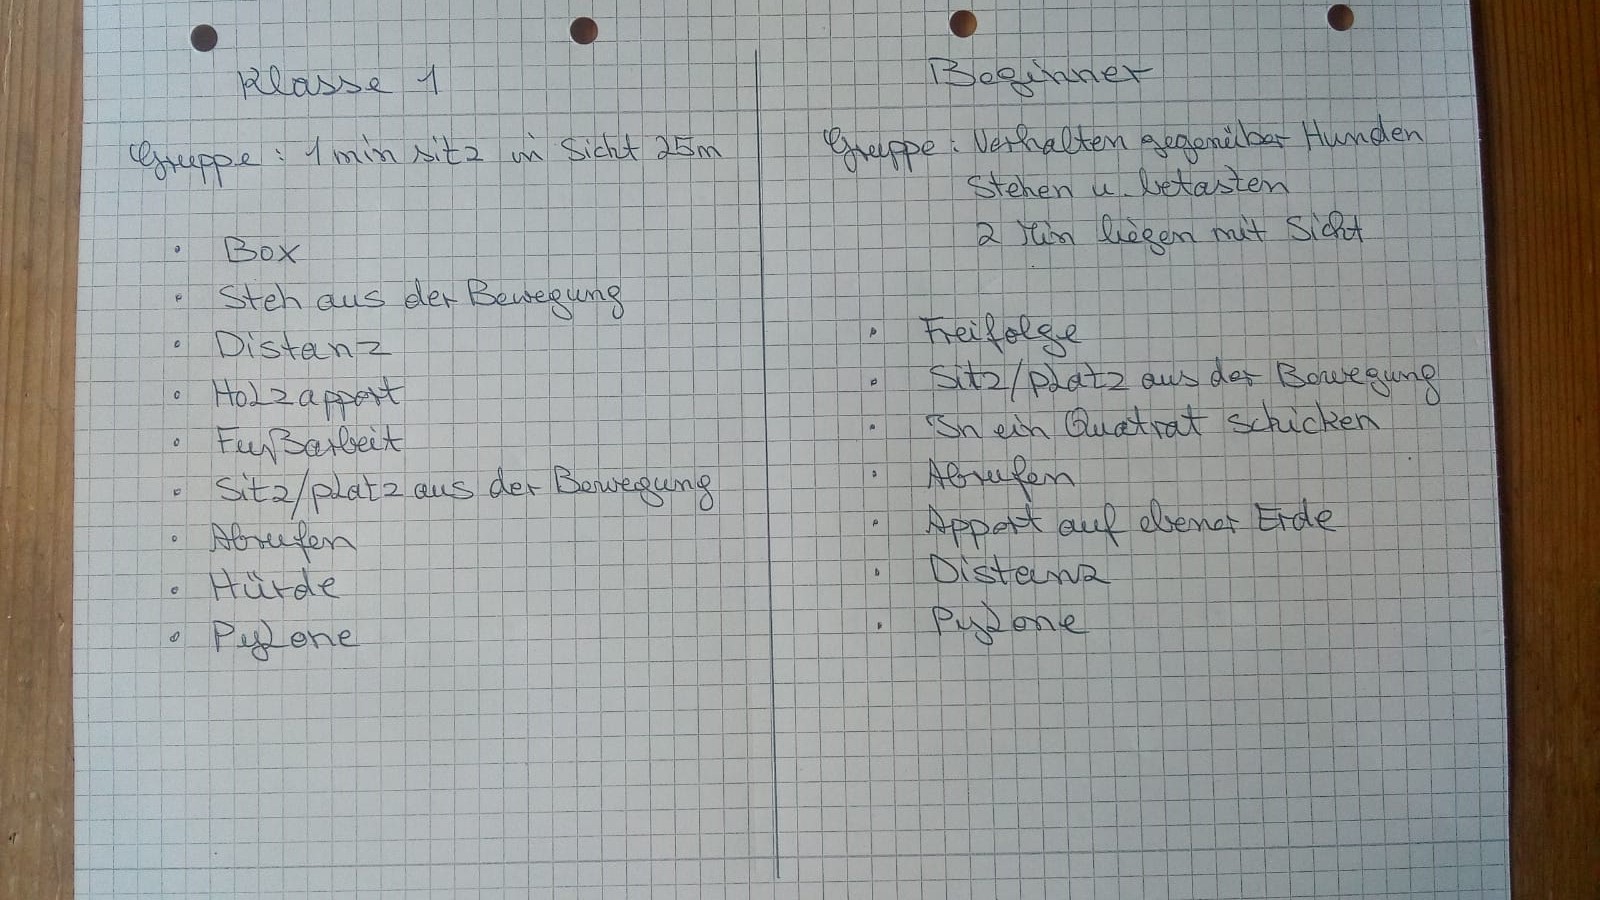 Klasse 1
Gruppe: 1 min sitz in Sicht 25m
• Box
• Steh aus der Bewegung
• Distanz
• Holzapport
• Fußarbeit
• Sitz/platz aus der Bewegung
• Abrufen
• Hürde
• Pylone
Beginner
Gruppe: Verhalten gegenüber Hunden
Stehen u. betasten
2 Min liegen mit Sicht
• Freifolge
• Sitz/platz aus der Bewegung
• In ein Quatrat schicken
• Abrufen
• Apport auf ebener Erde
• Distanz
• Pylone